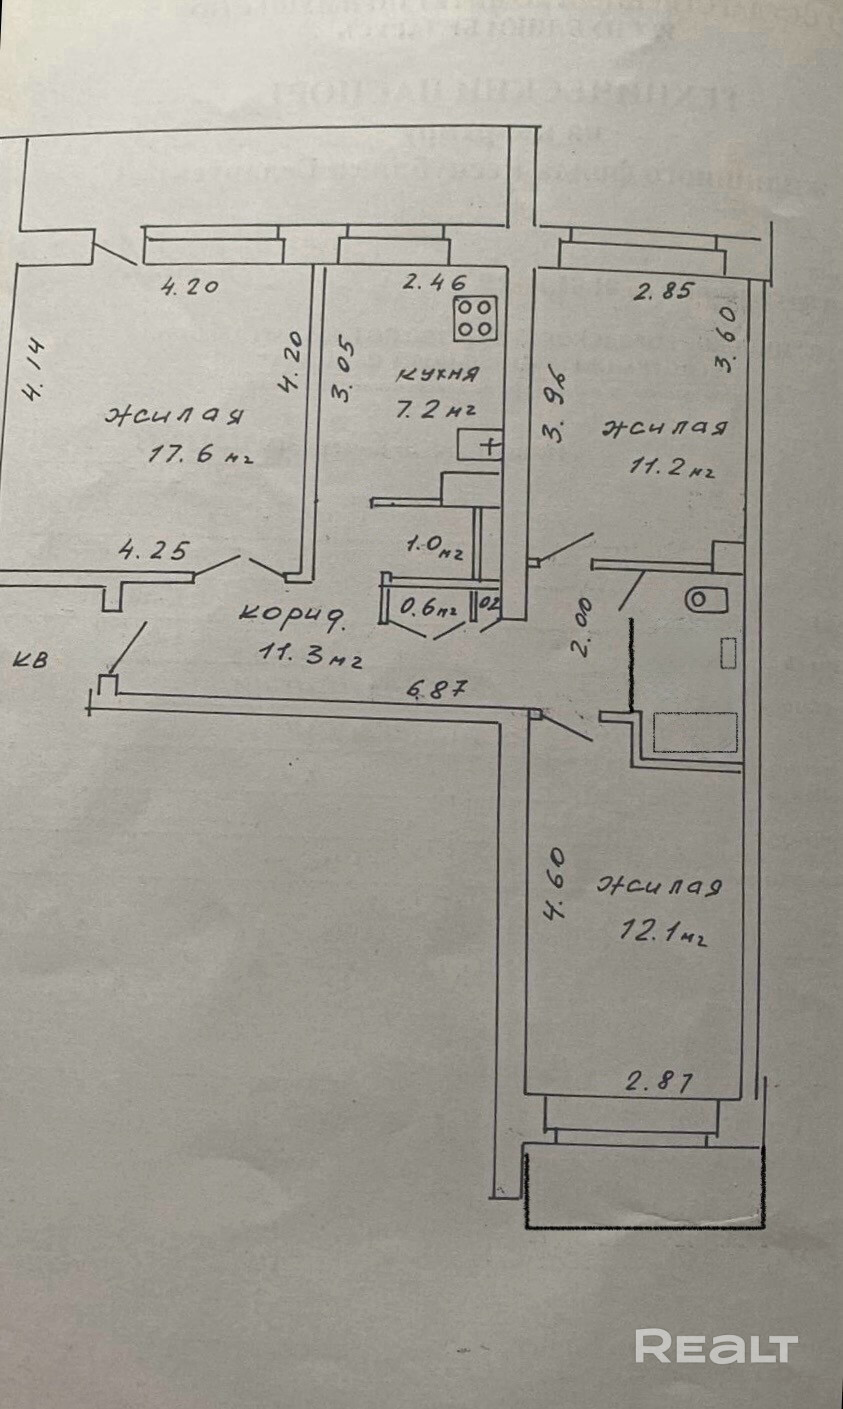 ТЕХНИЧЕСКИЙ ПАСПОРТ
4.20
2.46
2.85
4.14
4.20
3.05
3.96
3.60
кухня
7.2 м2
жилая
17.6 м2
жилая
11.2 м2
4.25
1.0 м2
0.6 м2
02
2.00
корид.
11.3 м2
кв
6.87
4.60
жилая
12.1 м2
2.87
REALT